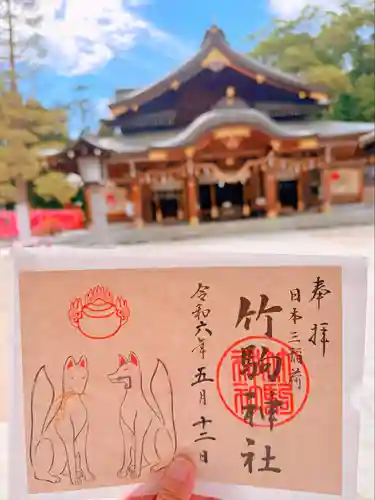 奉拝
日本三稲荷
竹駒神社
令和六年五月十二日